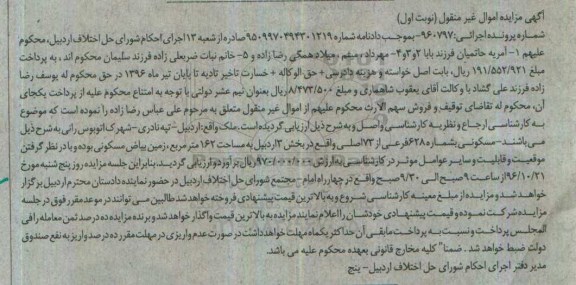 آگهی مزایده اموال غیر منقول (نوبت اول)
شماره پرونده اجرائی: ۹۶۰۷۹۷- بموجب دادنامه شماره ۹۵۰۹۹۷۰۴۹۴۳۰۱۲۱۹ صادره از شعبه ۱۳ اجرای احکام شورای حل اختلاف اردبیل، محکوم
علیهم ۱- آمریه حاتمیان فرزند بابا ۲و۳و۴- مهرداد، میثم، میلاد همگی رضا زاده و ۵- خانم نبات ضربعلی زاده فرزند سلیمان محکوم اند، به پرداخت
مبلغ ۱۹۱/۵۵۲/۹۲۱ ریال، بابت اصل خواسته و هزینه دادرسی + حق الوکاله + خسارت تاخیر تادیه تا پایان تیر ماه ۱۳۹۶ در حق محکوم له یوسف رضا
زاده فرزند علی گشاد با وکالت آقای یعقوب شاهماری و مبلغ ۸/۴۷۳/۵۰۰ ریال بعنوان نیم عشر دولتی با توجه به امتناع محکوم علیه از پرداخت یکجای
آن، محکوم له تقاضای توقیف و فروش سهم الارث محکوم علیهم از اموال غیر منقول متعلق به مرحوم علی عباس رضا زاده را نموده است که موضوع
به کارشناسی ارجاع و نظریه کارشناسی واصل و به شرح ذیل ارزیابی گردیده است. ملک واقع: اردبیل- تپه نادری- شهرک اتوبوس رانی به شرح ذیل
می باشند- مسکونی بشماره ۶۲۸ فرعی از ۷۳ اصلی واقع در بخش ۳ اردبیل به مساحت ۱۶۲ متر مربع، زمین بیاض مسکونی بوده و با در نظر گرفتن
موقعیت و قابلیت و سایر عوامل موثر در کارشناسی به ارزش ۹۷۰/۰۰۰/۰۰۰ ریال برآورد و ارزیابی گردید، بنابراین جلسه مزایده روز پنج شنبه مورخ
۹۶/۱۰/۲۱ از ساعت ۹ صبح الی ۹/۳۰ صبح واقع در چهارراه امام - مجتمع شورای حل اختلاف اردبیل در حضور نماینده دادستان محترم اردبیل برگزار
خواهد شد و مزایده از مبلغ معینه کارشناسی شروع و به بالاترین قیمت پیشنهادی فروخته خواهد شد طالبین می توانند در موعد مقرر فوق در جلسه
مزایده شرکت نموده و قیمت پیشنهادی خودشان را اعلام نمایند مزایده به بالاترین قیمت واگذار خواهد شد و برنده مزایده ده درصد ثمن معامله را فی
المجلس پرداخت و نسبت به پرداخت مابقی آن حداکثر یکماه مهلت خواهد داشت در صورت عدم واریزی در مهلت مقرر ده درصد واریز به نفع صندوق
دولت ضبط خواهد شد. ضمنا" کلیه مخارج قانونی بعهده محکوم علیه می باشد.
مدیر دفتر اجرای احکام شورای حل اختلاف اردبیل- پنج